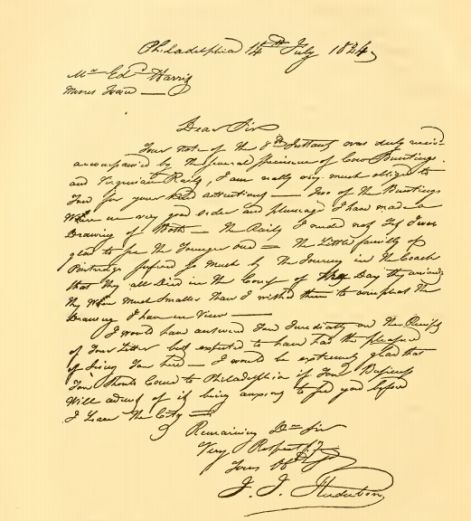 Philadelphia 14th July 1824
Mr Edd Harris
Moores Town —
Dear Sir
Your note of the 8th Instant was duly recd
accompanied by the several specimens of Cow Buntings
and Virginian Rails, I am really very much obliged to
You for your kind attentions — Two of the Buntings
Were in very good order and plumage I have made a
Drawing of Both — The Rails I would not but was
glad to see the Younger one — The Little family of
Partridge suffered so much by the Journey in the Coach
that they all Died in the Course of the Day they arrived
they Were Much Smaller than I wished them to compleat the
Drawing I have in View —
I would have answered Your Imediatly on the Receipt
of Your Letter but expected to have had the pleasure
of Seeing You here — I would be extremely glad that
You Should Come to Philadelphia if Your Business
Will admit of it being anxious to see you before
I Leave the City —
Remaining Dr Sir
Very Respectfy
Yours
J. J. Audubon